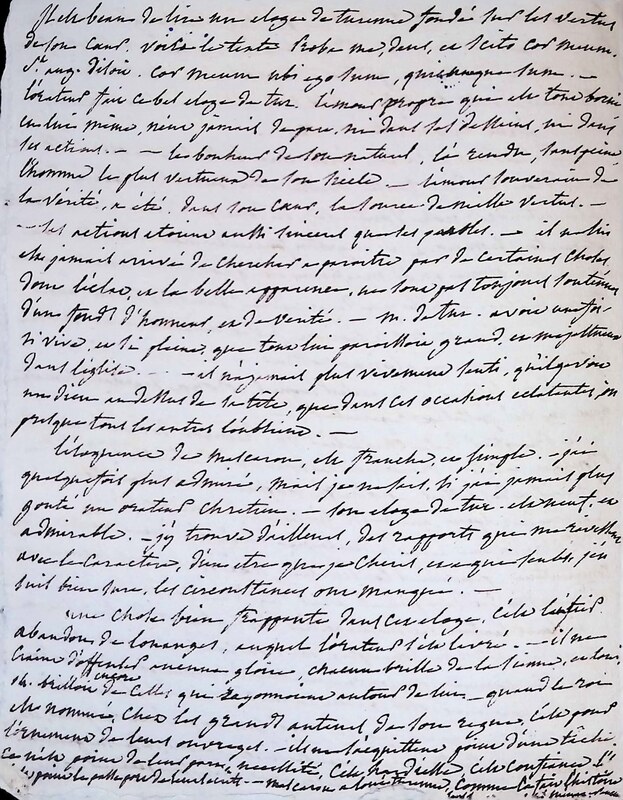 il est beau de lire un eloge de turenne fondé sur les vertus
de son cœur. voici le texte Proba me, deus, et scito cor meum.
St aug. disoit. cor meum ubi ego sum, quicumque sum. —
l'orateur fait ce bel eloge de tur. l'amour propre qui est tout borné
en lui même, n'eut jamais de part, ni dans ses desseins, ni dans
ses actions. — — le bonheur de son naturel, l'a rendu, sans peine
l'homme le plus vertueux de son siecle. — l'amour souverain de
la verité, a été, dans son cœur, la source de mille vertus. —
— ses actions etoient aussi sinceres que ses paroles. — il ne lui
est jamais arrivé de chercher a paroitre par de certaines choses
dont l'éclat, et la belle apparence, ne sont pas toujours soutenues
d'un fonds d'honneur, et de verité. — m. de tur. avoit une foi
si vive, et si pleine, que tout lui paroissoit grand, et majestueux
dans l'église. — — il n'a jamais plus vivement senti, qu'il y avoit
un dieu au dessus de sa tête, que dans ces occasions eclatantes, où
presque tous les autres l'oublient. —
l'éloquence de mascaron, est franche, et simple. — j'ai
quelquefois plus admiré, mais je ne sais, si j'ai jamais plus
gouté un orateur chretien. — son eloge de tur. est neuf, et
admirable. — j'y trouve d'ailleurs, des rapports qui me
avec le caractère, d'un etre que je cheris, et a qui seules, j'en
suis bien sure, les circonstances ont manqué. —
une chose bien frappante dans cet eloge, c'est l'entier
abandon de louanges, auquel l'orateur s'est livré. — il ne
craint d'offenser aucune gloire, chacun brille de la sienne, et
brilloit encore de celles que rayonnoient autour de lui — quand le roi
est nommé, chez les grands auteurs de son regne, c'est pour
l'ornement de leurs ouvrages. — ils ne s'acquittent point d'une tache
ce n'est point de leur part necessité, c'est c'est confiance.
— mascaron a loué turenne, comme l'a fait l'histoire